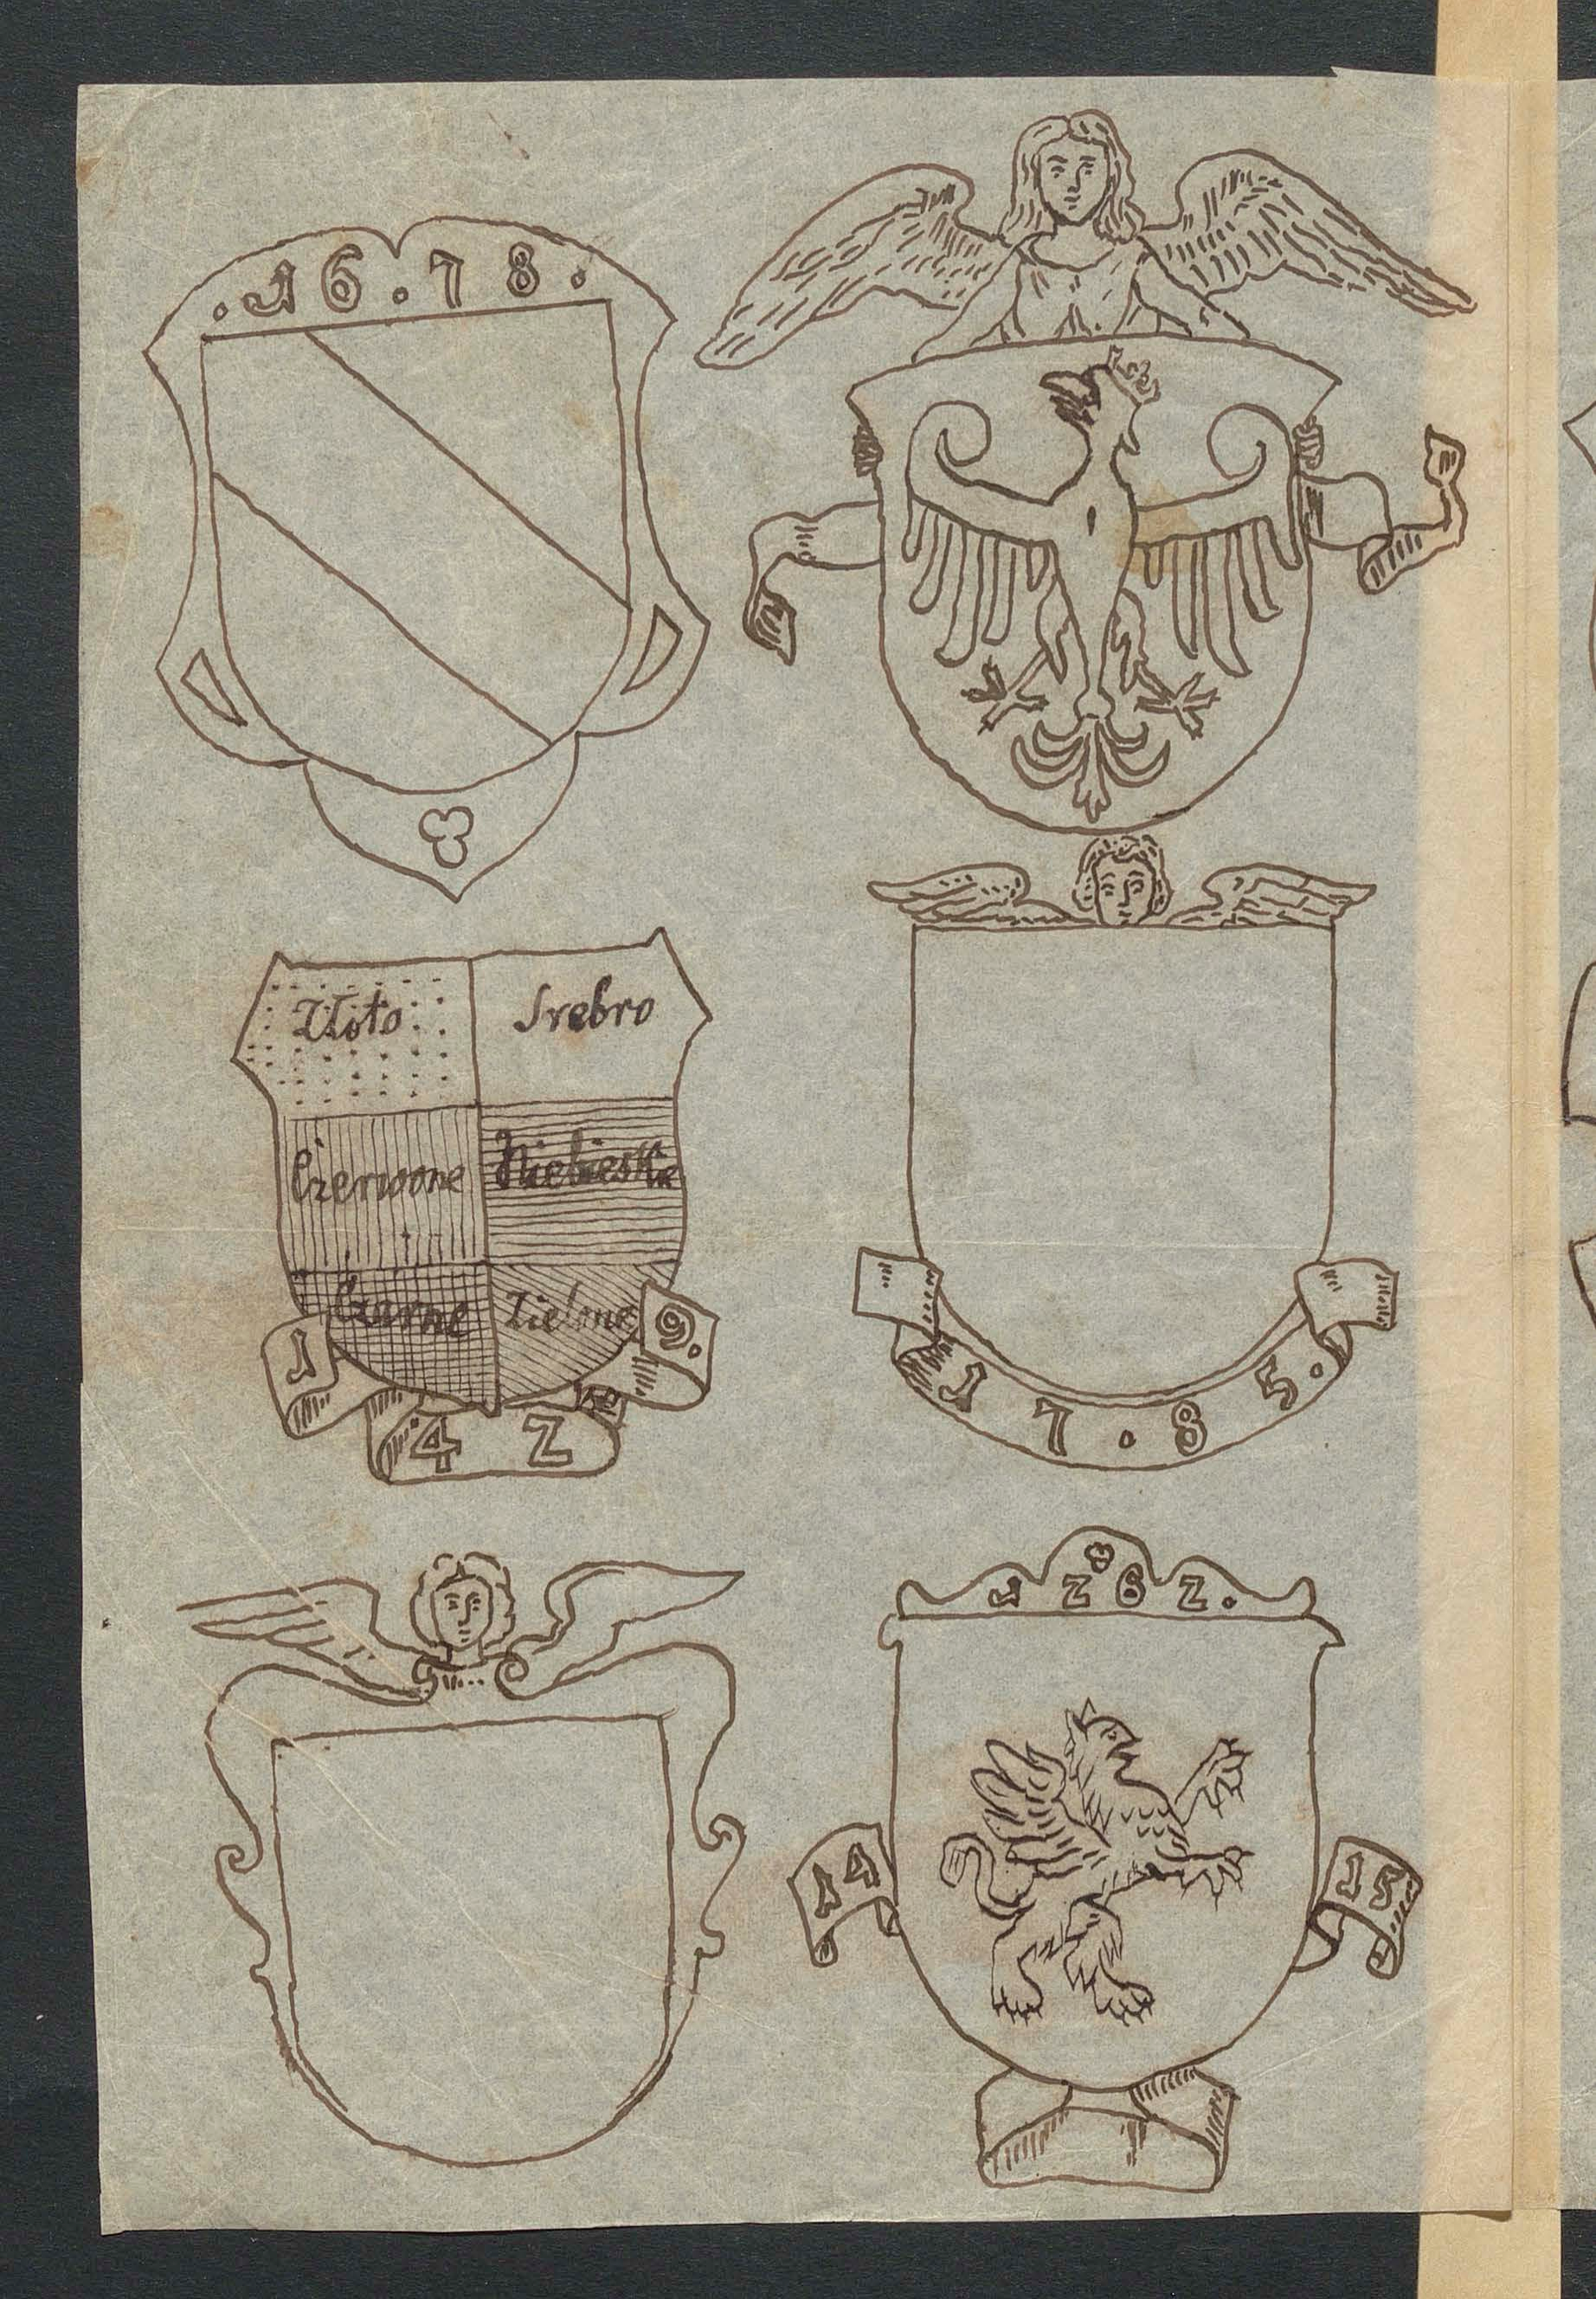 .16.78.
Złoto Srebro
Czerwone Niebieskie
Czarne Zielone
1 4 2 9.
1 7 . 8 5.
1262.
14 15